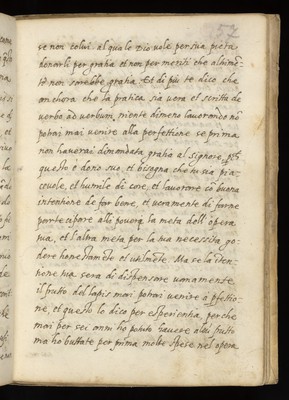 157
se non colui. al quale Dio vole per sua pietà
donarli per gratia et non per meriti che altrimē
te non sarebbe gratia. Et di più te dico che
anchora che la pratica sia vera et scritta de
verbo ad verbum, niente dimeno lavorando nō
potrai mai venire alla perfettione se prima
non haverai dimandata gratia al signore, pch
questo è dono suo, et bisogna che tu sia pia
cevole, et humile di core, et lavorare cō buona
intentione de far bene, et veramente di farne
parte capare alli poveri la metà dell'opera
tua, et l'altra metà per la tua necessità go
dere honestamēte et utilmēte. Ma se la īten
tione tua serà de dispensare vanamente
il frutto del lapis mai potrai venire à pfettio
ne, et questo lo dico per esperientia, perche
mai per sei anni ho potuto havere alcū frutto
ma ho buttate per prima molte spese nel opera